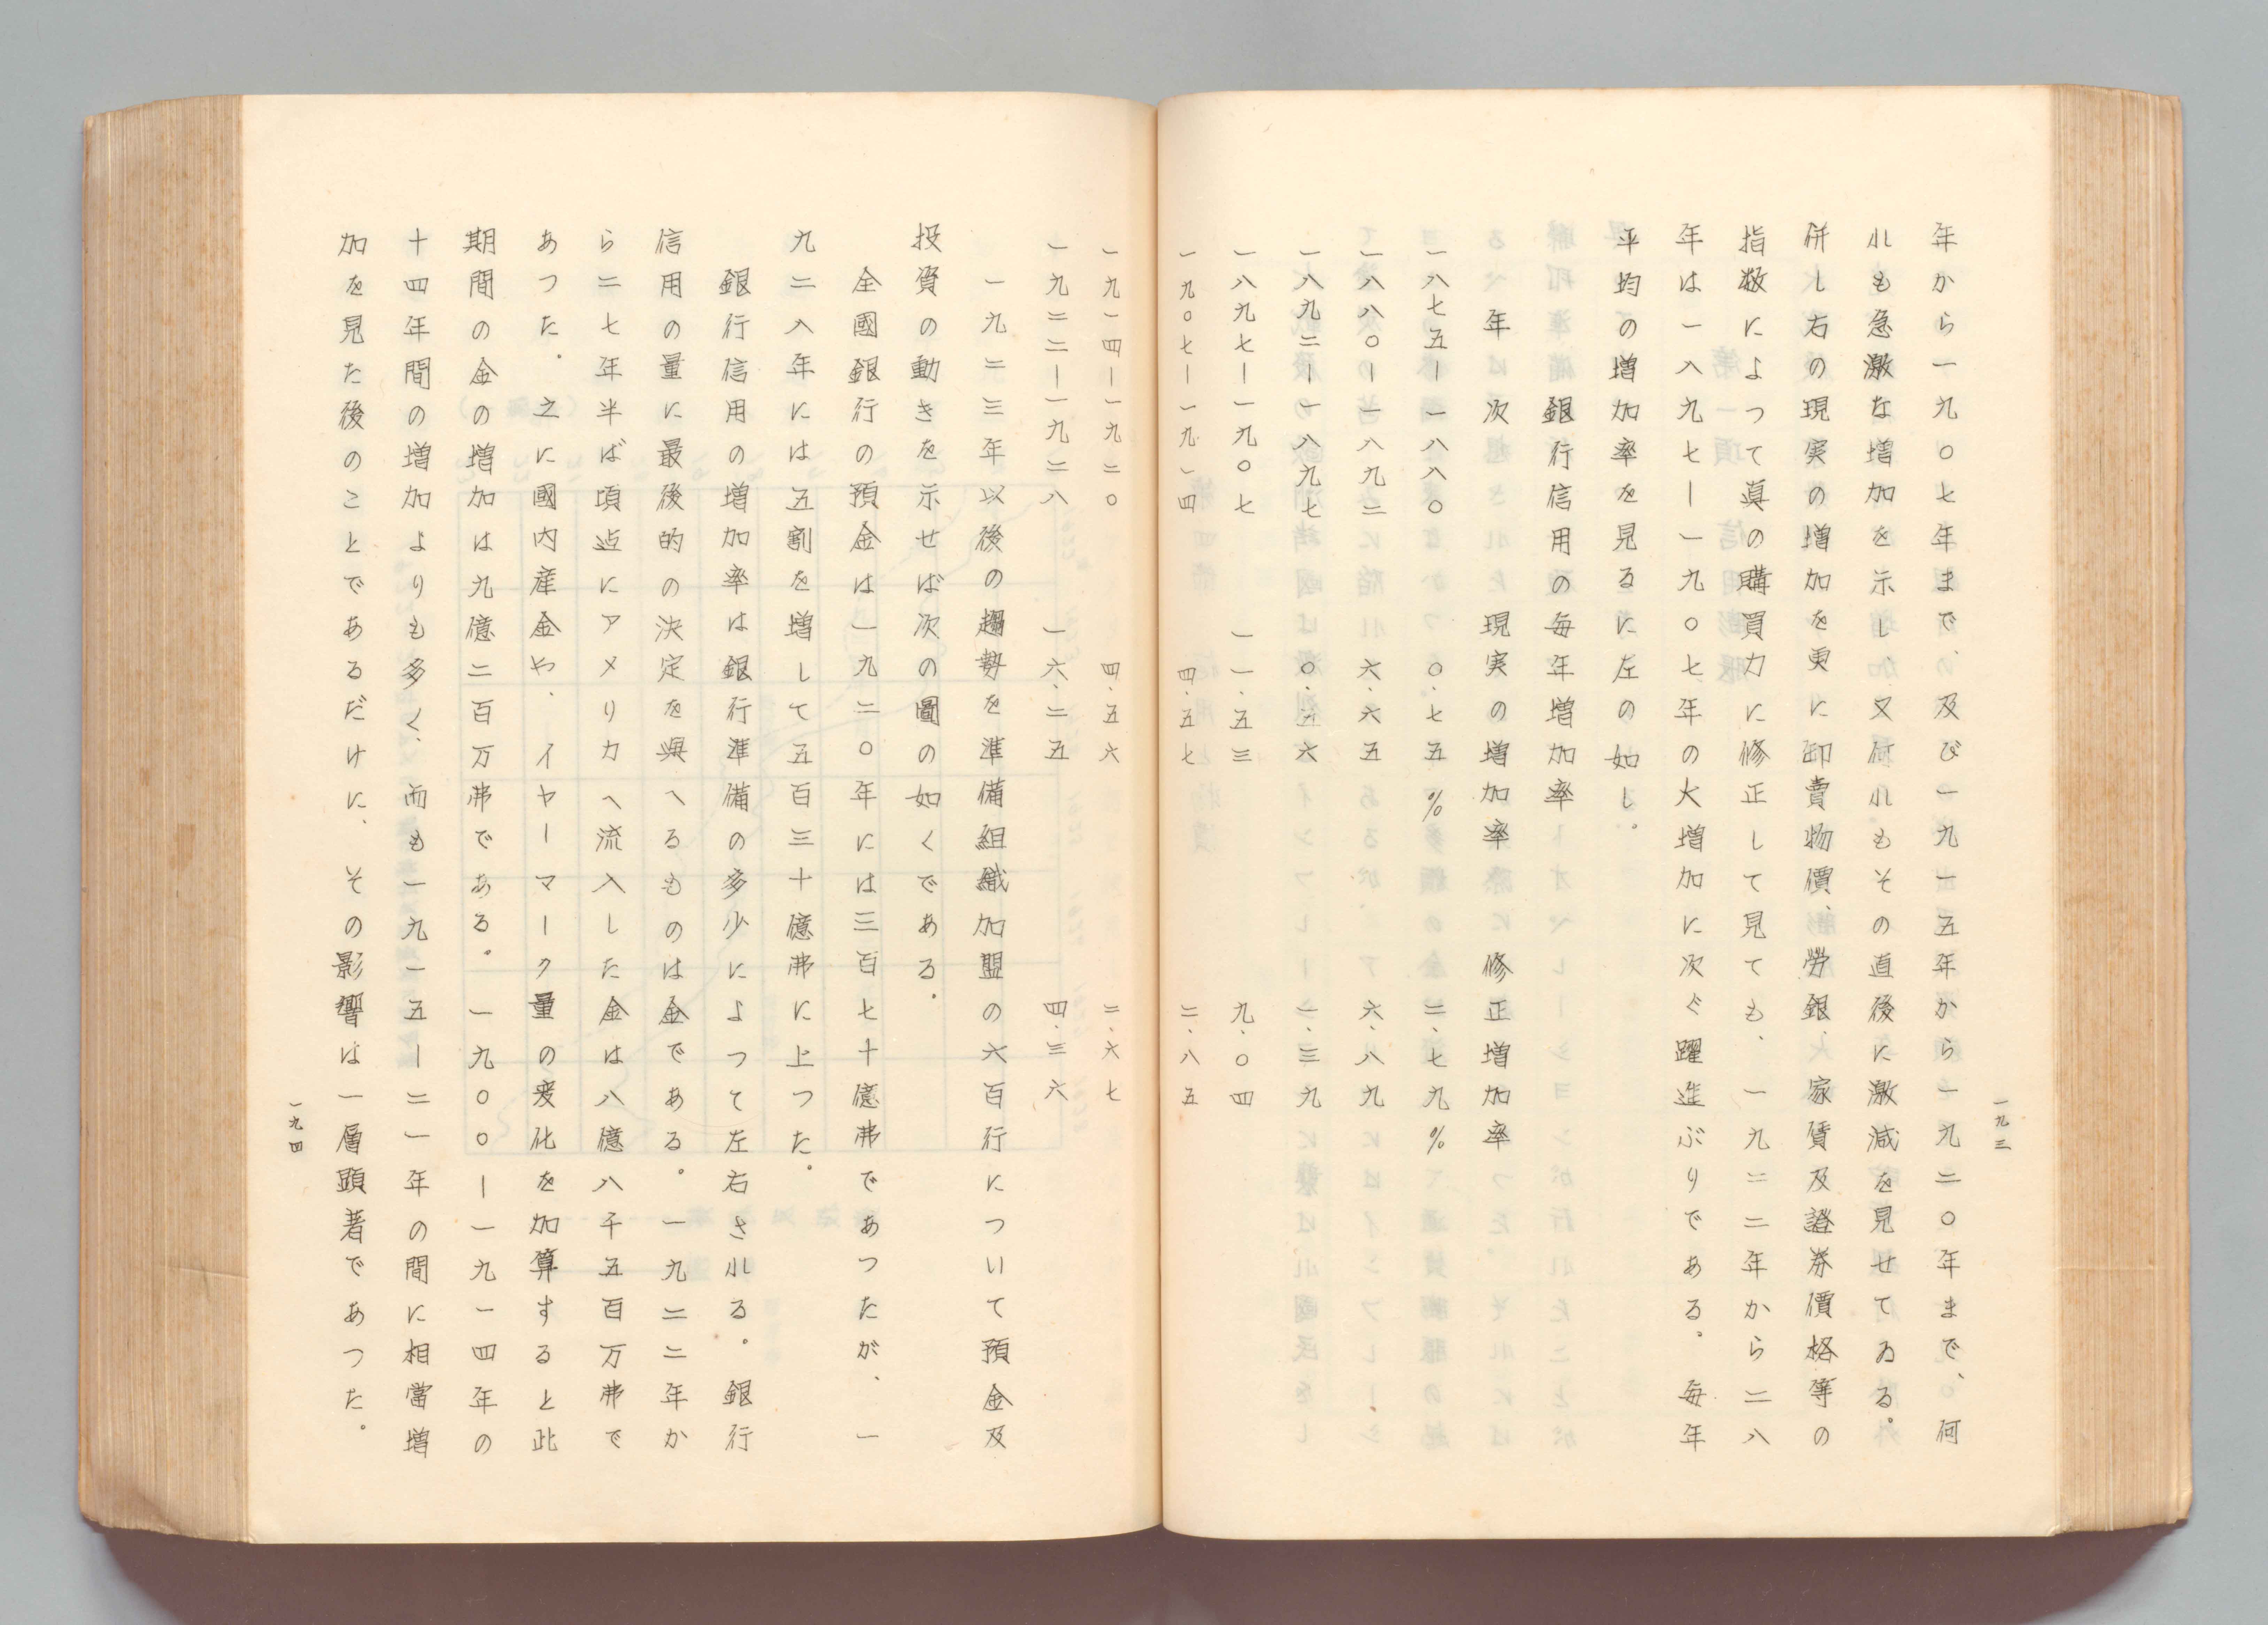 年から一九〇七年まで、及び一九一五年から一九二〇年まで、何
れも急激な増加を示し、又何れもその直後に激減を見せてゐる。
併し右の現実の増加を更に卸賣物價、勞銀、家賃及證券價格等の
指数によつて眞の購買力に修正して見ても、一九二二年から二八
年は一八九七ー一九〇七年の大増加に次ぐ躍進ぶりである。毎年
平均の増加率を見るに左の如し。
銀行信用の毎年増加率
年次 現実の増加率 修正増加率
一八七五ー一八八〇 〇.七五% 二.七九%
一八八〇ー一八九二 六.六五 六.八九
一八九二ー一八九七 〇.五六 一.三九
一八九七ー一九〇七 一一.五三 九.〇四
一九〇七ー一九一四 四.五七 二.八五
一九三
一九一四ー一九二〇 四.五六 二.六七
一九二二ー一九二八 一六.二五 四.三六
一九二三年以後の趨勢を準備組織加盟の六百行について預金及
投資の動きを示せば次の圖の如くである。
全國銀行の預金は一九二〇年には三百七十億弗であつたが、一
九二八年には五割を増して五百三十億弗に上つた。
銀行信用の増加率は銀行準備の多少によつて左右される。銀行
信用の量に最後的の決定を與へるものは金である。一九二二年か
ら二七年半ば頃迠にアメリカへ流入した金は八億八千五百万弗で
あつた。之に國内産金や、イヤーマーク量の変化を加算すると此
期間の金の増加は九億二百万弗である。一九〇〇ー一九一四年の
十四年間の増加よりも多く、而も一九一五ー二一年の間に相當増
加を見た後のことであるだけに、その影響は一層顕著であつた。
一九四